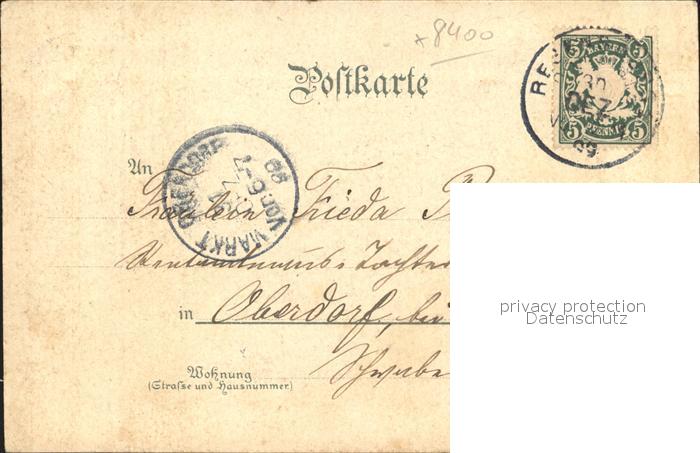 * 8400
Postkarte
5 BAYERN 5
5 PFENNIG 5
30
DEZ
99
An
MARKT OBERDORF
Vor. 6-7
Fräulein Frieda
Rentamtmanns-Tochter
in Oberdorf, bei
Schwabe
Wohnung
(Straße und Hausnummer.)
privacy protection
Datenschutz